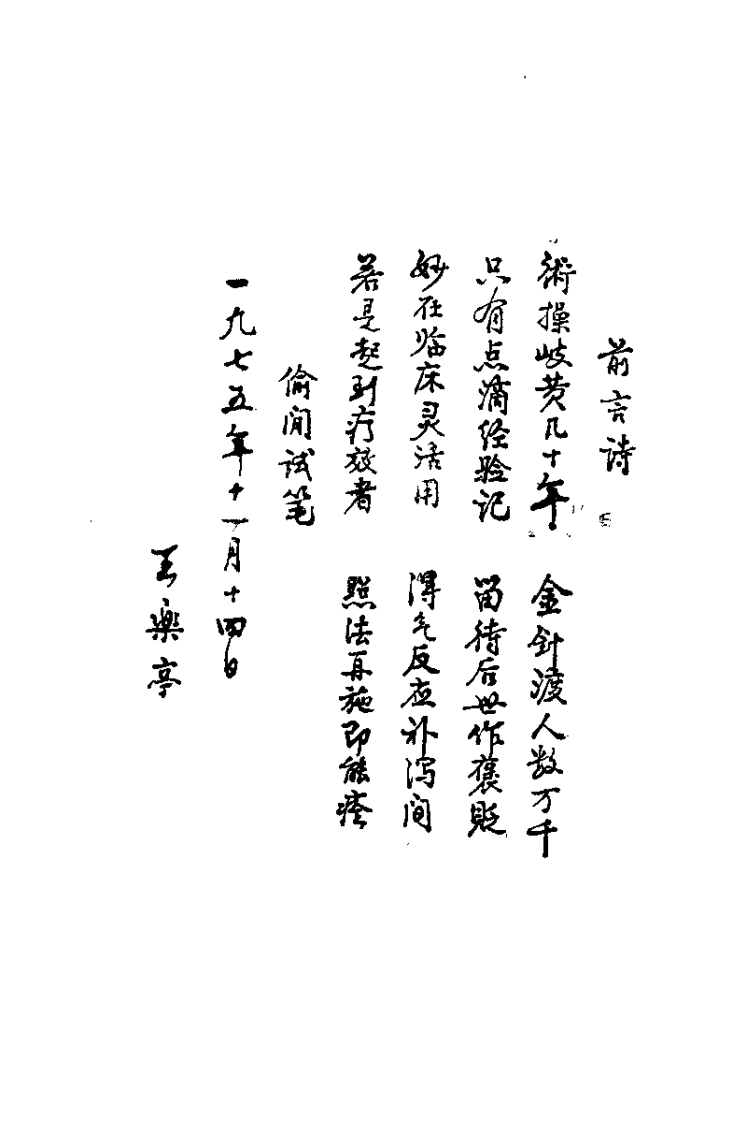 前言诗
術操岐黄几十年 金针渡人数万千
只有点滴经验记 留待后世作褒贬
妙在临床灵活用 得气反应补泻间
若是起到疗效者 照法再施即能痊
偷闲试笔
一九七五年十一月十四日
王樂亭